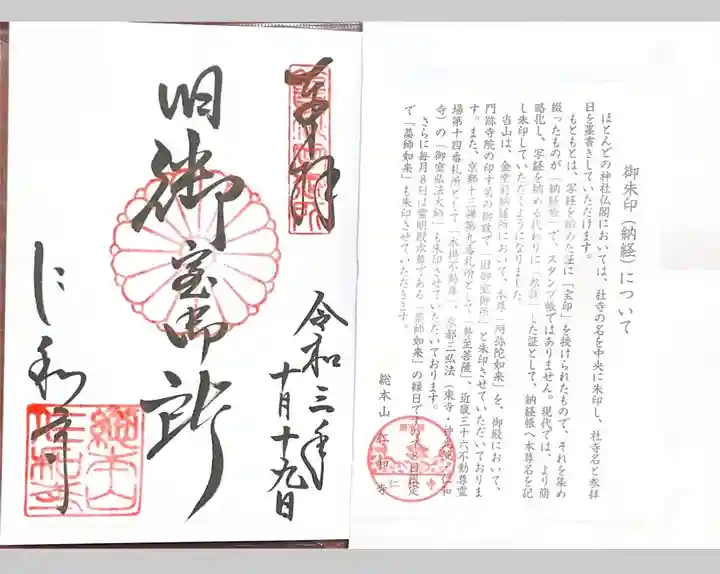 奉拝
旧御室御所
令和三年
十月十九日
仁和寺
総本山
仁和寺
御朱印（納経）について
ほとんどの神社仏閣においては、社寺の名を中央に朱印し、社寺名と参拝
日を墨書きしていただけます。
もともとは、写経を納めた証に「宝印」を授けられたもので、それを集め
綴ったものが「納経帳」で、スタンプ帳ではありません。現代では、より簡
略化し、写経を納める代わりに「参拝」した証として、納経帳へ本尊名を記
し朱印していただくようになりました。
当山は、金堂前納経所において、本尊「阿弥陀如来」を、御殿において、
門跡寺院の印『菊の御紋で「旧御室御所」と朱印させていただいておりま
す。また、京都十三佛第九番札所として「勢至菩薩」、近畿三十六不動尊霊
場第十四番札所として「水掛不動尊」、京都三弘法（東寺・神光院・仁和
寺）の「御室弘法大師」も朱印させていただいております。
さらに毎月8日は霊明殿本尊である「薬師如来」の縁日ですので8日限定
で「薬師如来」も朱印させていただきます。
総本山 仁和寺